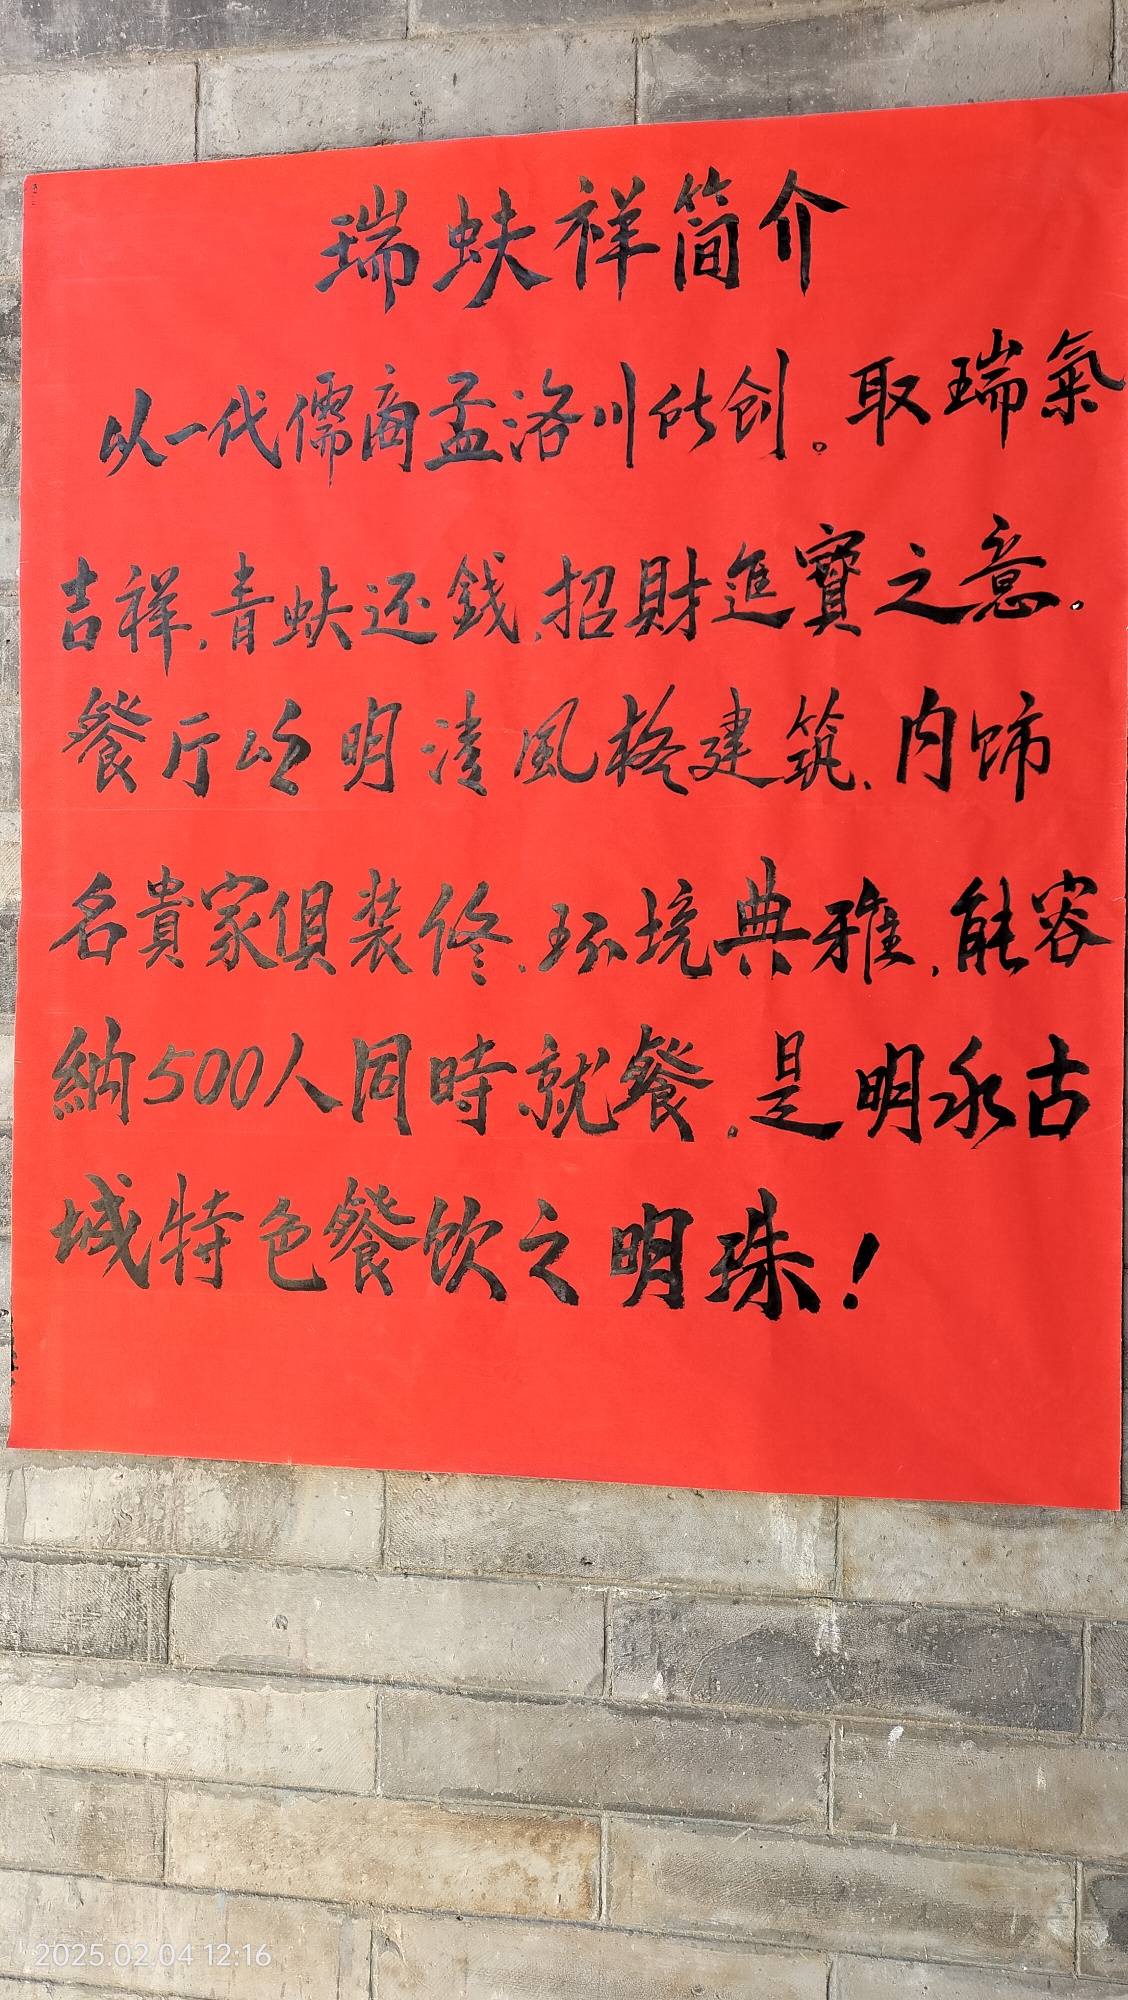 瑞蚨祥简介
以一代儒商孟洛川所创。取瑞氣
吉祥,青蚨还錢,招財進寶之意。
餐厅以明清風格建筑,内饰
名貴家俱装修,环境典雅,能容
納500人同時就餐,是明永古
城特色餐饮之明珠!
2025.02.04 12:16